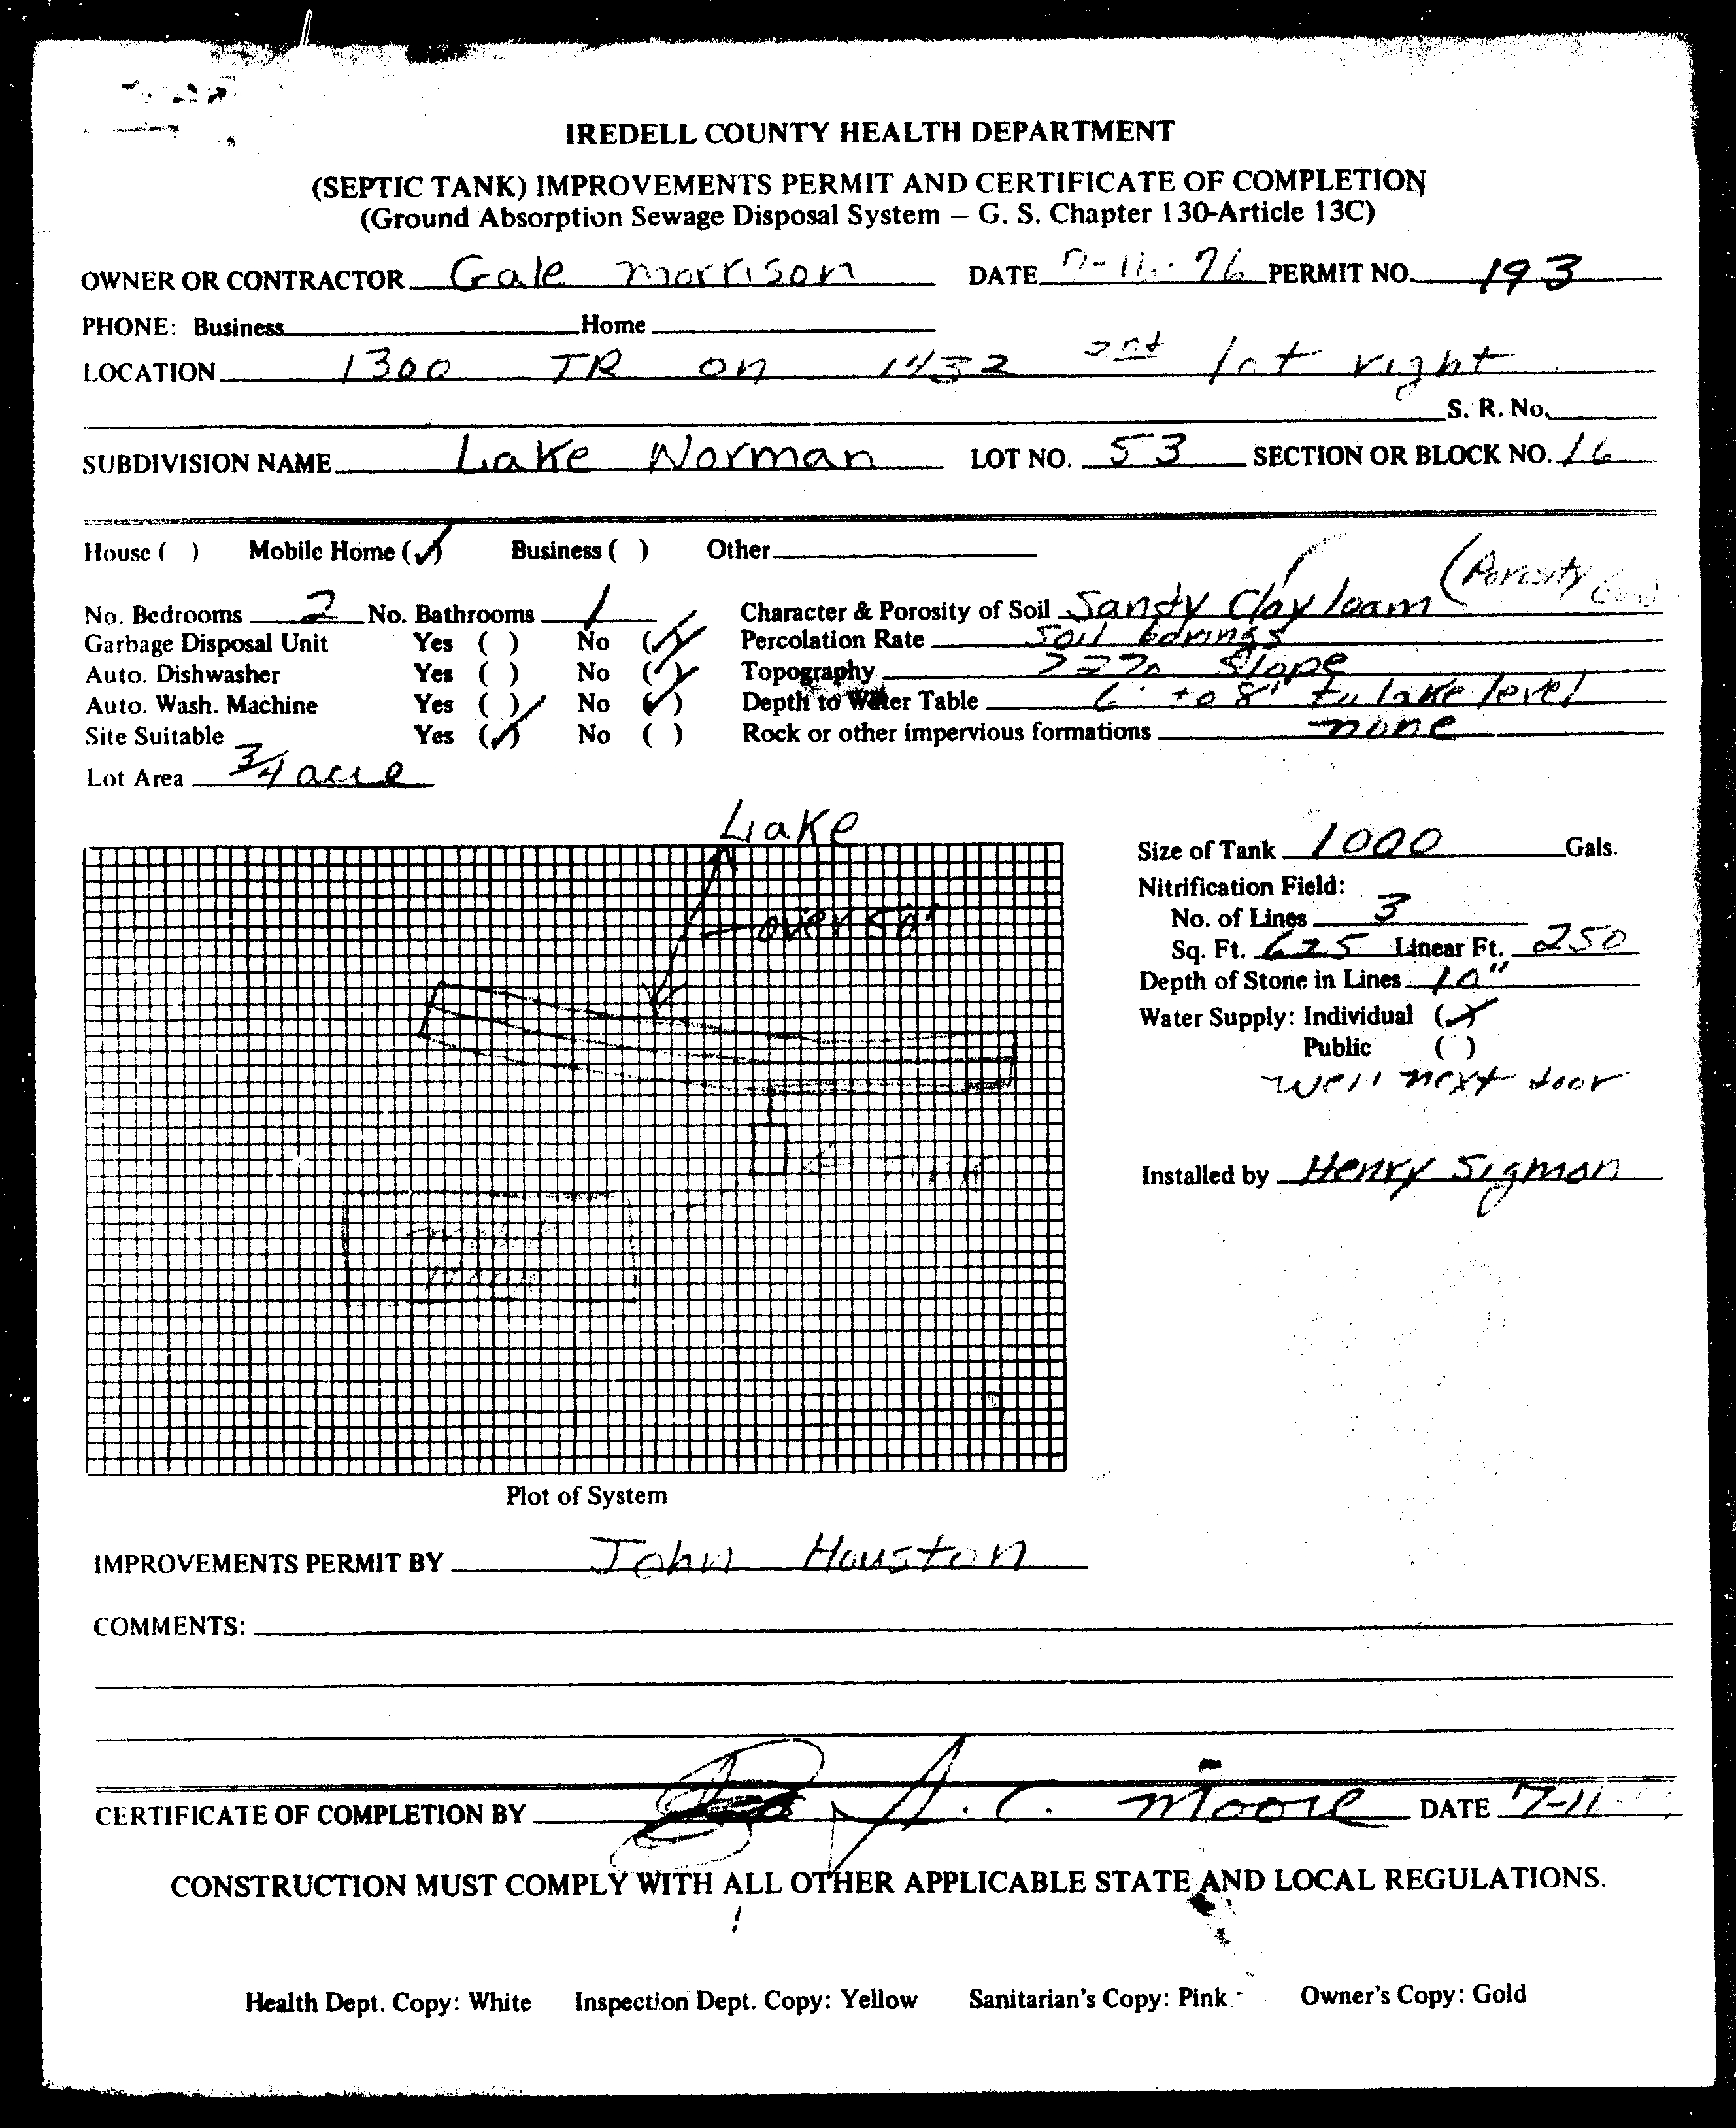 IREDELL COUNTY HEALTH DEPARTMENT
(SEPTIC TANK) IMPROVEMENTS PERMIT AND CERTIFICATE OF COMPLETION
(Ground Absorption Sewage Disposal System – G. S. Chapter 130-Article 13C)
OWNER OR CONTRACTOR Gale Morrison DATE PERMIT NO. 193
PHONE: Business Home
LOCATION 1300 TR on 1432 2nd lot right
S. R. No.
SUBDIVISION NAME Lake Norman LOT NO. 53 SECTION OR BLOCK NO. 16
House ( ) Mobile Home (✓) Business ( ) Other
(Porosity Good)
No. Bedrooms 2 No. Bathrooms 1 Character & Porosity of Soil Sandy Clay loam
Garbage Disposal Unit Yes ( ) No (✓) Percolation Rate Soil borings
Auto. Dishwasher Yes ( ) No (✓) Topography slope
Auto. Wash. Machine Yes ( ) No (✓) Depth to Water Table 6' to 8' to lake level
Site Suitable Yes (✓) No ( ) Rock or other impervious formations none
Lot Area 3/4 acre
Lake
over 50'
Tank
Mobile
Home
Size of Tank 1000 Gals.
Nitrification Field:
No. of Lines 3
Sq. Ft. 625 Linear Ft. 250
Depth of Stone in Lines 10"
Water Supply: Individual (✓)
Public ( )
Well next door
Installed by Henry Sigmon
Plot of System
IMPROVEMENTS PERMIT BY John Houston
COMMENTS:
CERTIFICATE OF COMPLETION BY J. C. Moore DATE
CONSTRUCTION MUST COMPLY WITH ALL OTHER APPLICABLE STATE AND LOCAL REGULATIONS.
Health Dept. Copy: White Inspection Dept. Copy: Yellow Sanitarian's Copy: Pink Owner's Copy: Gold